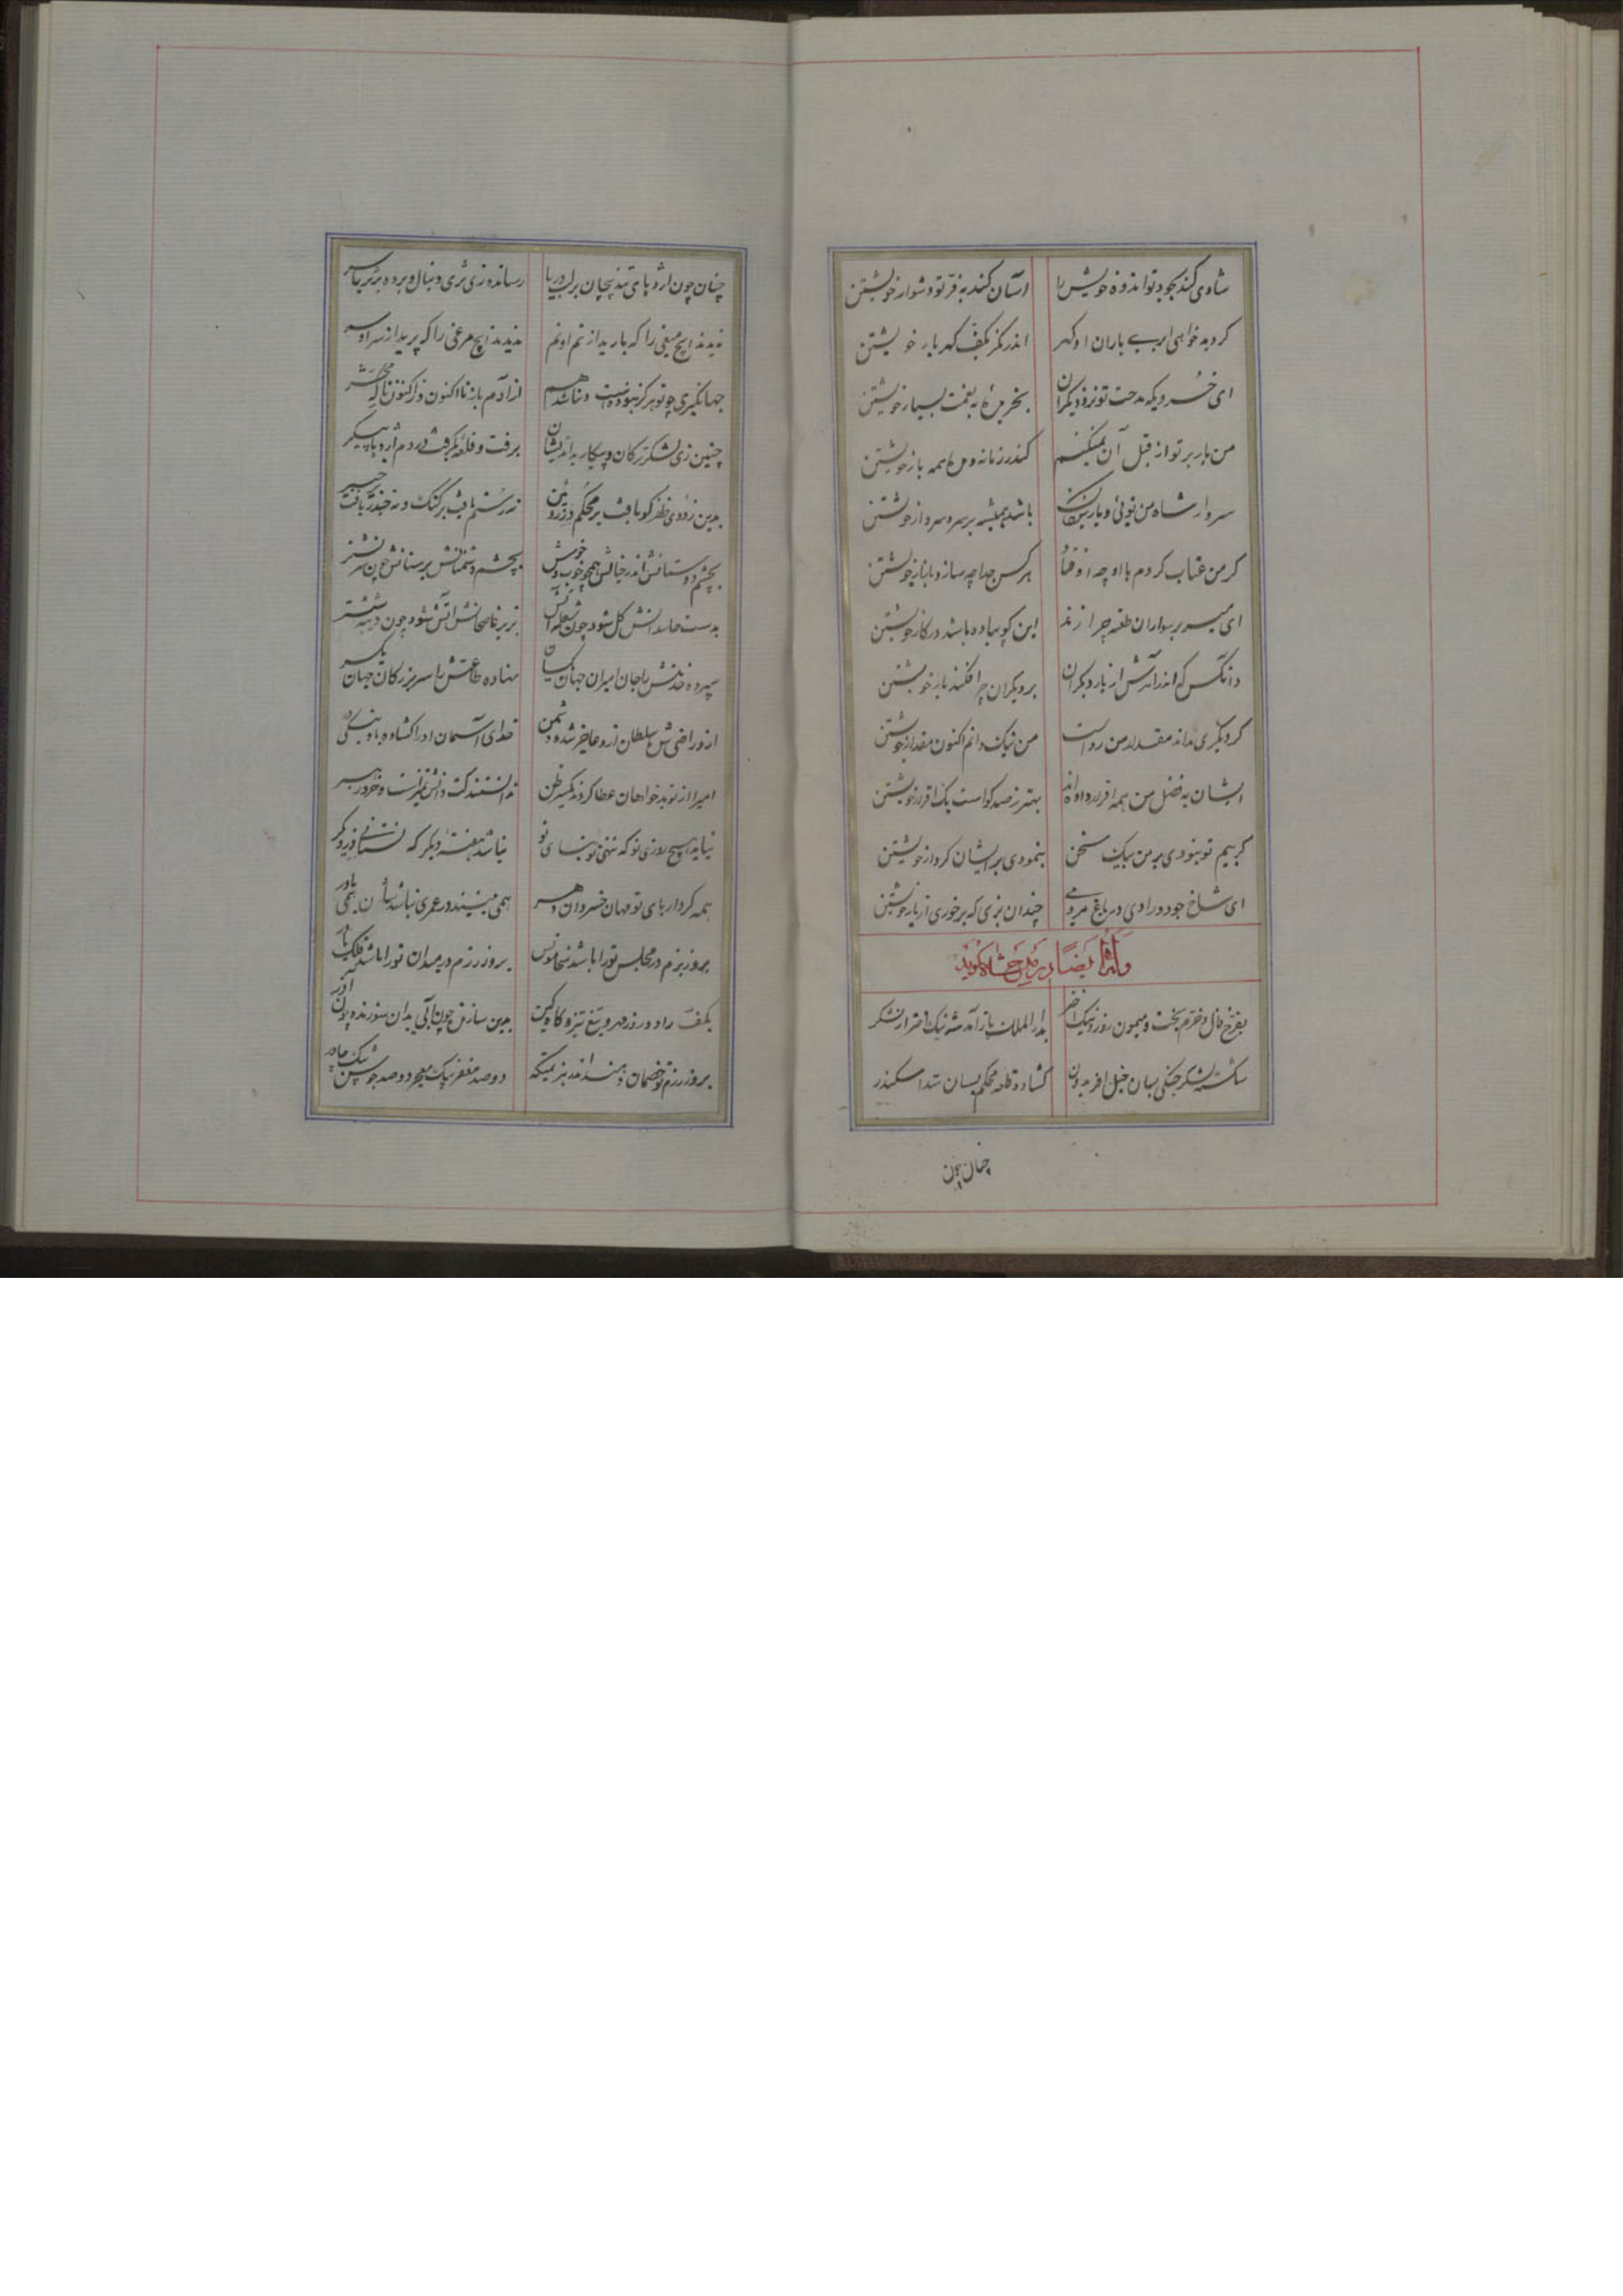 شادی کند بجود تو اندوه خویش را آسان کند به فر تو دشوار خویشتن
کر دید خواهی ابر بی باران او کهر اندر نکر بکف کهر بار خویشتن
ای خسرویکه مدحت تو نزد دیکران بخریم به نعمت بسیار خویشتن
من بار بر تو از قبل آن نمیکنم کندر زمانه همه بار خویشتن
سردار شاه من توئی و باشد همیشه بر سر سردار خویشتن
کر من عتاب کردم با او چه اوفتاد هر کس جدا چه سازد بازار خویشتن
ای میر بر سواران طعنه چرا زند این کو پیاده باشد در کار خویشتن
وانکس که اندر آمرش از بار دیکران بر دیکران چرا فکند بار خویشتن
کر دیکری نداند مقدار من رواست من نیک دانم اکنون مقدار خویشتن
ایشان به فضل من همه اقرار داده اند بهتر ز صد کواست یک اقرار خویشتن
کر بیم تو نبودی بر من بیک سخن بنمودی بر ایشان کردار خویشتن
ای شاخ جود و رادی در باغ مردمی چندان بزی که برخوری از بار خویشتن
وله ایضا در مدح شاه کوید
بفرخ فال و خرم بخت و میمون روز و نیک اختر بدار الملک باز آمد شه نیک اختر از لشکر
شکسته لشکر جنکی بسان خیل افریدون کشاده قلعه محکم بسان سد اسکندر
چنان چون
چنان چون اژدهای تند پیچان بر لب دریا رسانده زی ثری دنبال و برده بر ثریا سر
ندیدند ایچ میغی را که بارید از نم او نم ندیدند ایچ مرغی را که پرید از سر او سر
جهانکیری چو تو هرکز نبوده است و نباشد هم از آدم باز تا اکنون و ز اکنون تا که محشر
چنین زی لشکر ترکان و پیکار بداندیشان برفت و قلعه بکرفت در دم اژدها پیکر
بدین زودی ظفر کو یافت بر محکم دز روئین نه رستم یافت بر کنک و نه حیدر یافت خیبر
بچشم دوستانش اندر خیالش همچو خواب خوش بچشم دشمنانش بر سنانش چون سر نشتر
بدست حاسدانش کل شود چون شعله آتش بزیر ناصحانش آتش شود چون دسته ششتر
سپرده خدمتش را جان امیران جهان یکسان نهاده طاعتش را سر بزرکان جهان یکسر
ازو راضی شه سلطان ازو عاجز شده دشمن خدای آسمان او را کشاده باد نیکی در
امیرا از تو بدخواهان عطا کردند یکسر ظن ندانستند کت دانش تمامست و خرد رهبر
نیاید هیچ روزی نو که ننهی تو بنای نو نباشد هفته دیکر که نستانی دزی دیکر
همه کردارهای تو مهان خسروان دهر همی بینند در عمری نباشدشان همی باور
بروز بزم در مجلس تو را باشد سخا مونس بروز رزم در میدان تو را باشد فلک یاور
بکف راد و روز مهر و تیغ تیز و کاه کین بدین سازنده چون آبی بدان سوزنده چون آذر
بروز رزم تو خصمان دهند اندر هزیمتکه دو صد مغفر بیک معجر دو صد جوشن بیک چادر